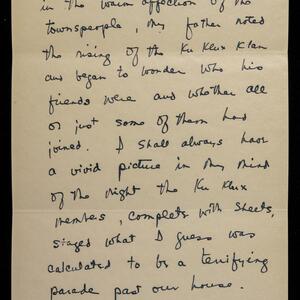 in the warm affection of the
townspeople, my father noted
the rising of the Ku Klux Klan
and began to wonder who his
friends were and whether all
or just some of them had
joined. I shall always have
a vivid picture in my mind
of the night the Ku Klux
members, complete with sheets,
staged what I guess was
calculated to be a terrifying
parade past our house.